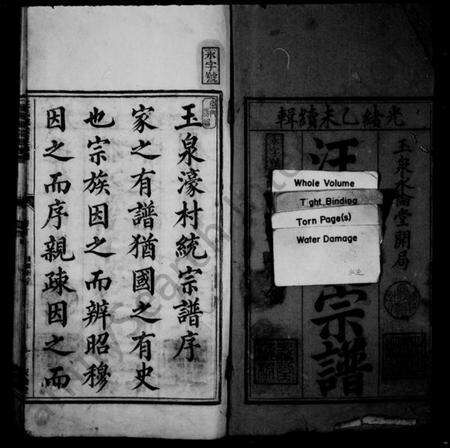 光緒乙未續輯
玉泉永思堂開局
汪
宗譜
永字號
Whole Volume
Tight Binding
Torn Page(s)
Water Damage
永字號
玉泉濠村統宗譜序
家之有譜猶國之有史
也宗族因之而辨昭穆
因之而序親疎因之而